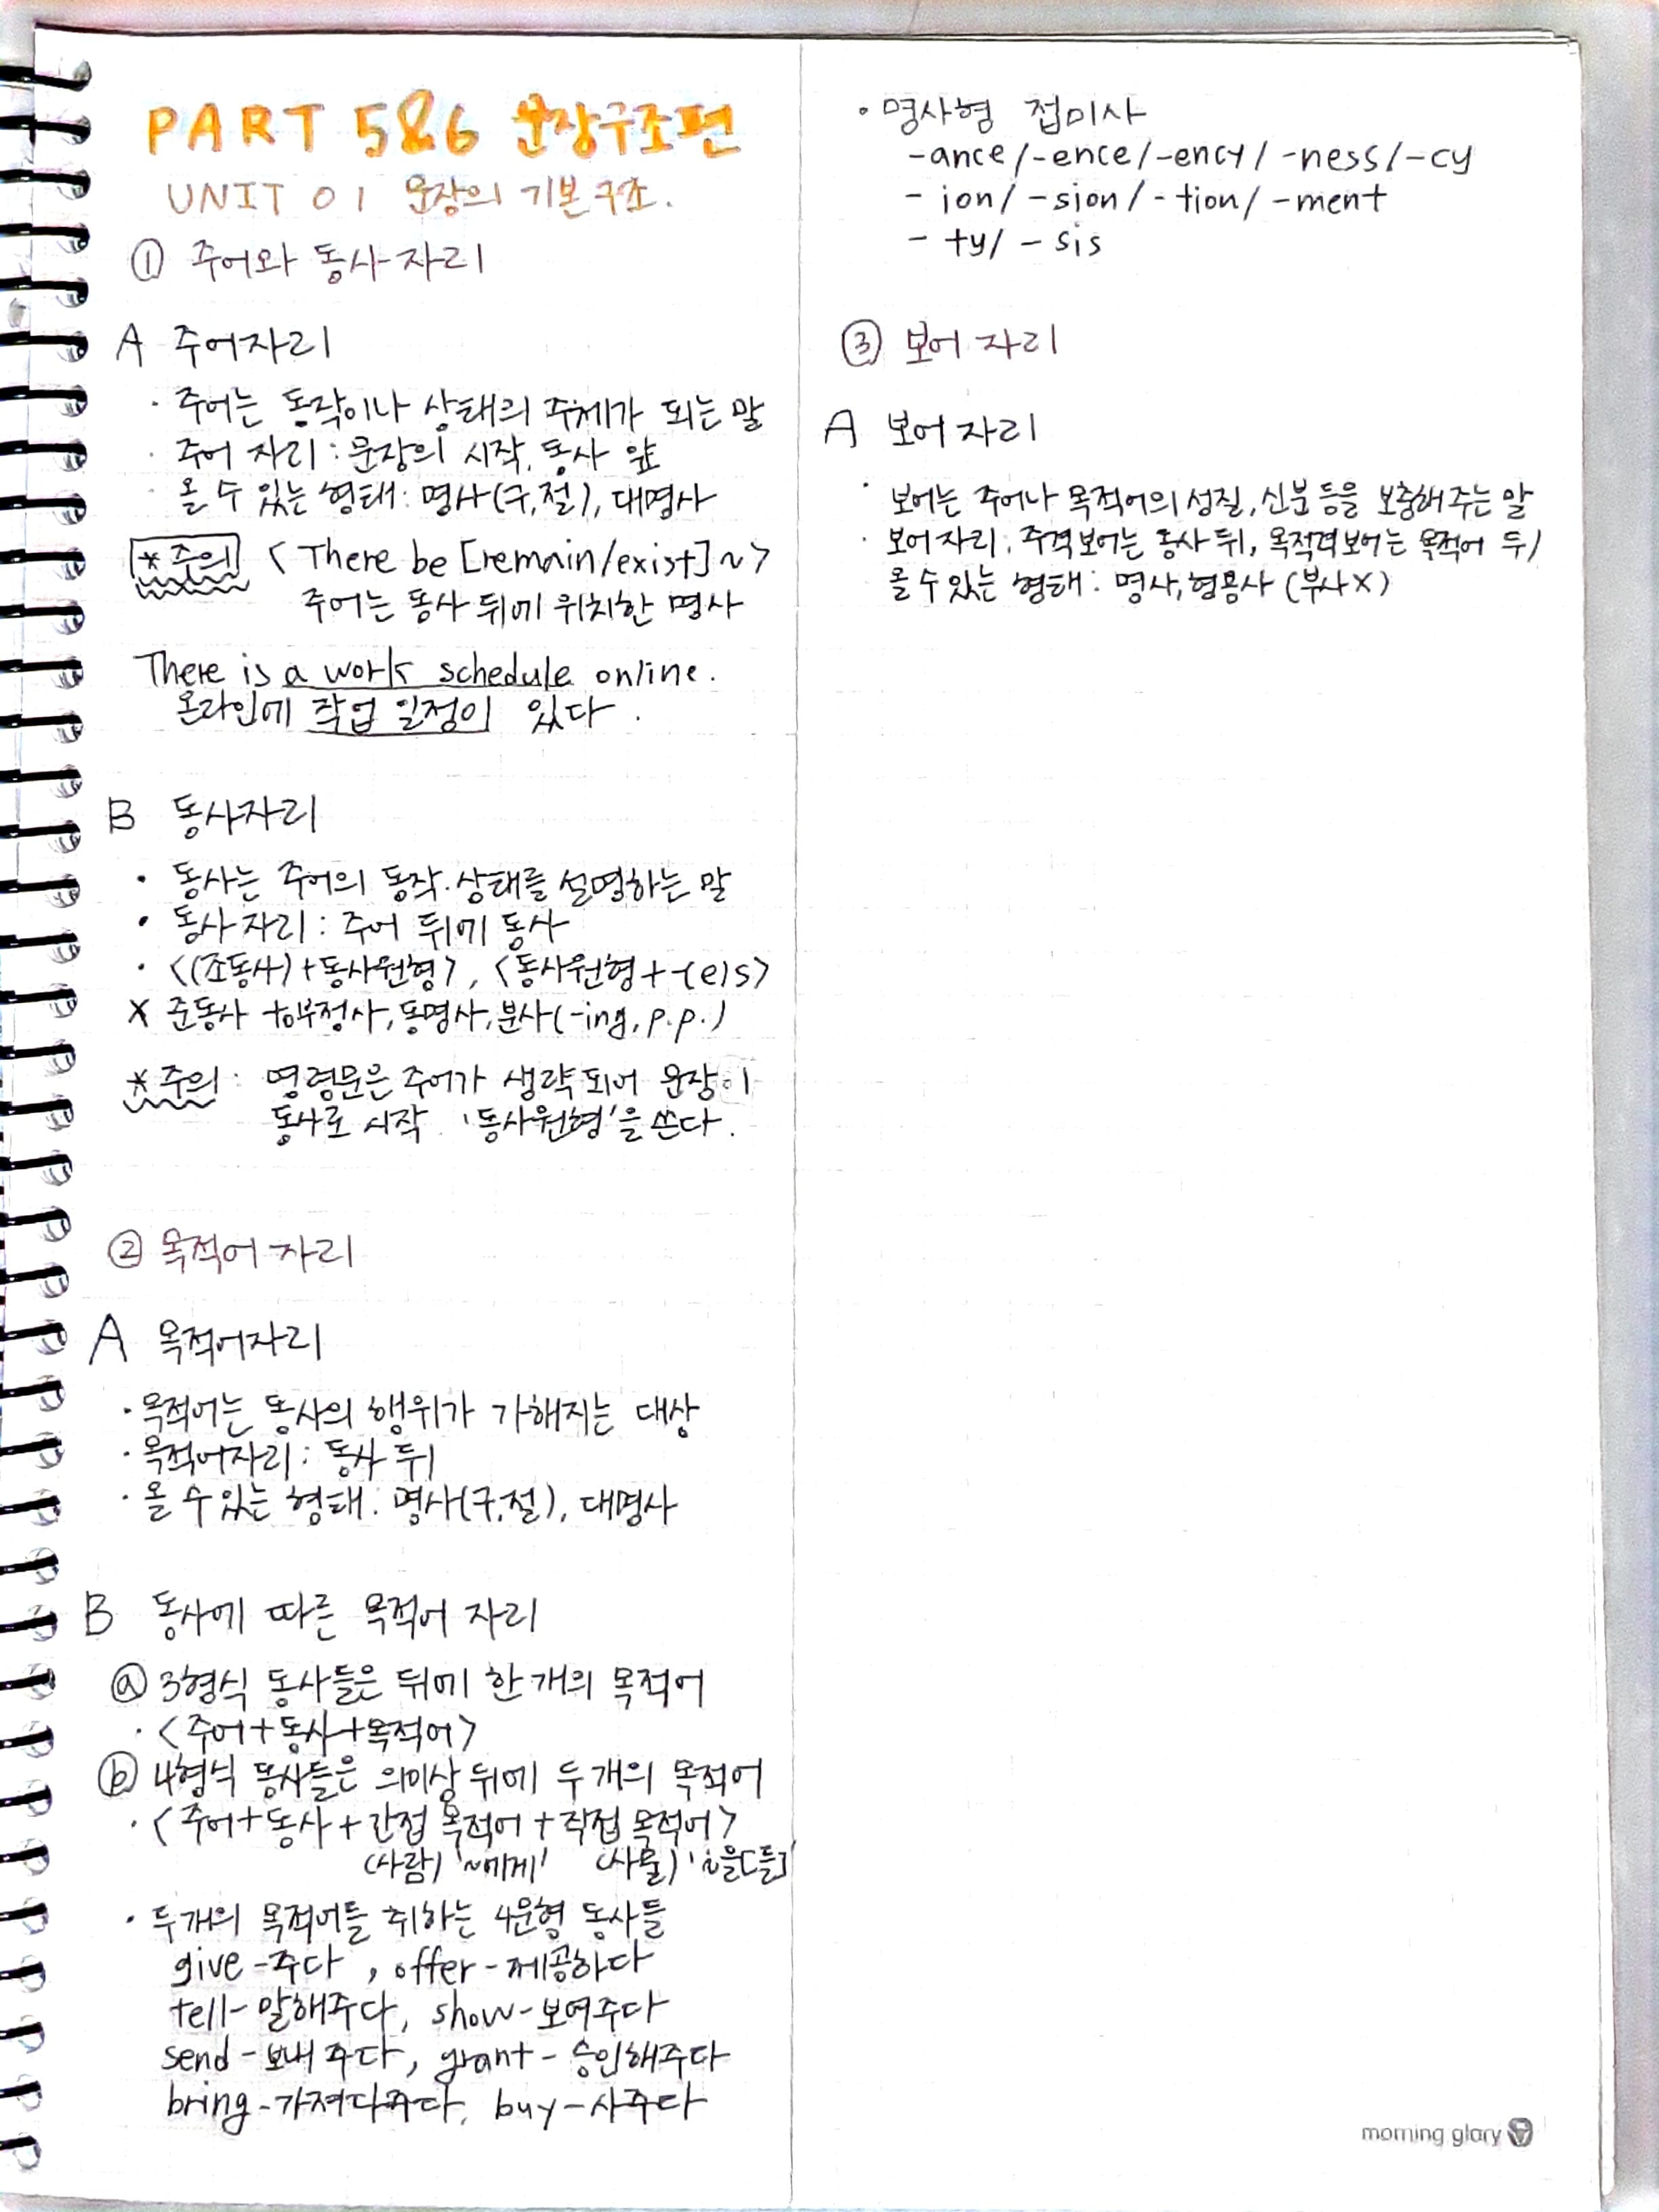 PART 5&6 문장구조편
UNIT 01 문장의 기본구조.
① 주어와 동사 자리
A 주어자리
· 주어는 동작이나 상태의 주체가 되는 말
· 주어 자리 : 문장의 시작, 동사 앞
· 올 수 있는 형태: 명사(구,절), 대명사
*주의 < There be [remain/exist] ~ >
주어는 동사 뒤에 위치한 명사
There is a work schedule online.
온라인에 작업 일정이 있다.
B 동사자리
· 동사는 주어의 동작·상태를 설명하는 말
· 동사 자리 : 주어 뒤에 동사
· <(조동사)+동사원형>, <동사원형+-(e)s>
X 준동사 to부정사, 동명사, 분사(-ing, p.p.)
*주의 : 명령문은 주어가 생략되어 문장이
동사로 시작. '동사원형'을 쓴다.
② 목적어 자리
A 목적어자리
· 목적어는 동사의 행위가 가해지는 대상
· 목적어자리 : 동사 뒤
· 올 수 있는 형태: 명사(구,절), 대명사
B 동사에 따른 목적어 자리
ⓐ 3형식 동사들은 뒤에 한 개의 목적어
· <주어+동사+목적어>
ⓑ 4형식 동사들은 의미상 뒤에 두 개의 목적어
· <주어+동사+간접 목적어+직접 목적어>
(사람) '~에게' (사물) '~을[를]'
· 두개의 목적어를 취하는 4문형 동사들
give-주다, offer-제공하다
tell-말해주다, show-보여주다
send-보내주다, grant-승인해주다
bring-가져다주다, buy-사주다
· 명사형 접미사
-ance/-ence/-ency/-ness/-cy
-ion/-sion/-tion/-ment
-ty/-sis
③ 보어 자리
A 보어자리
· 보어는 주어나 목적어의 성질, 신분 등을 보충해주는 말
· 보어자리: 주격보어는 동사 뒤, 목적격보어는 목적어 뒤/
올 수 있는 형태: 명사, 형용사 (부사X)
morning glory